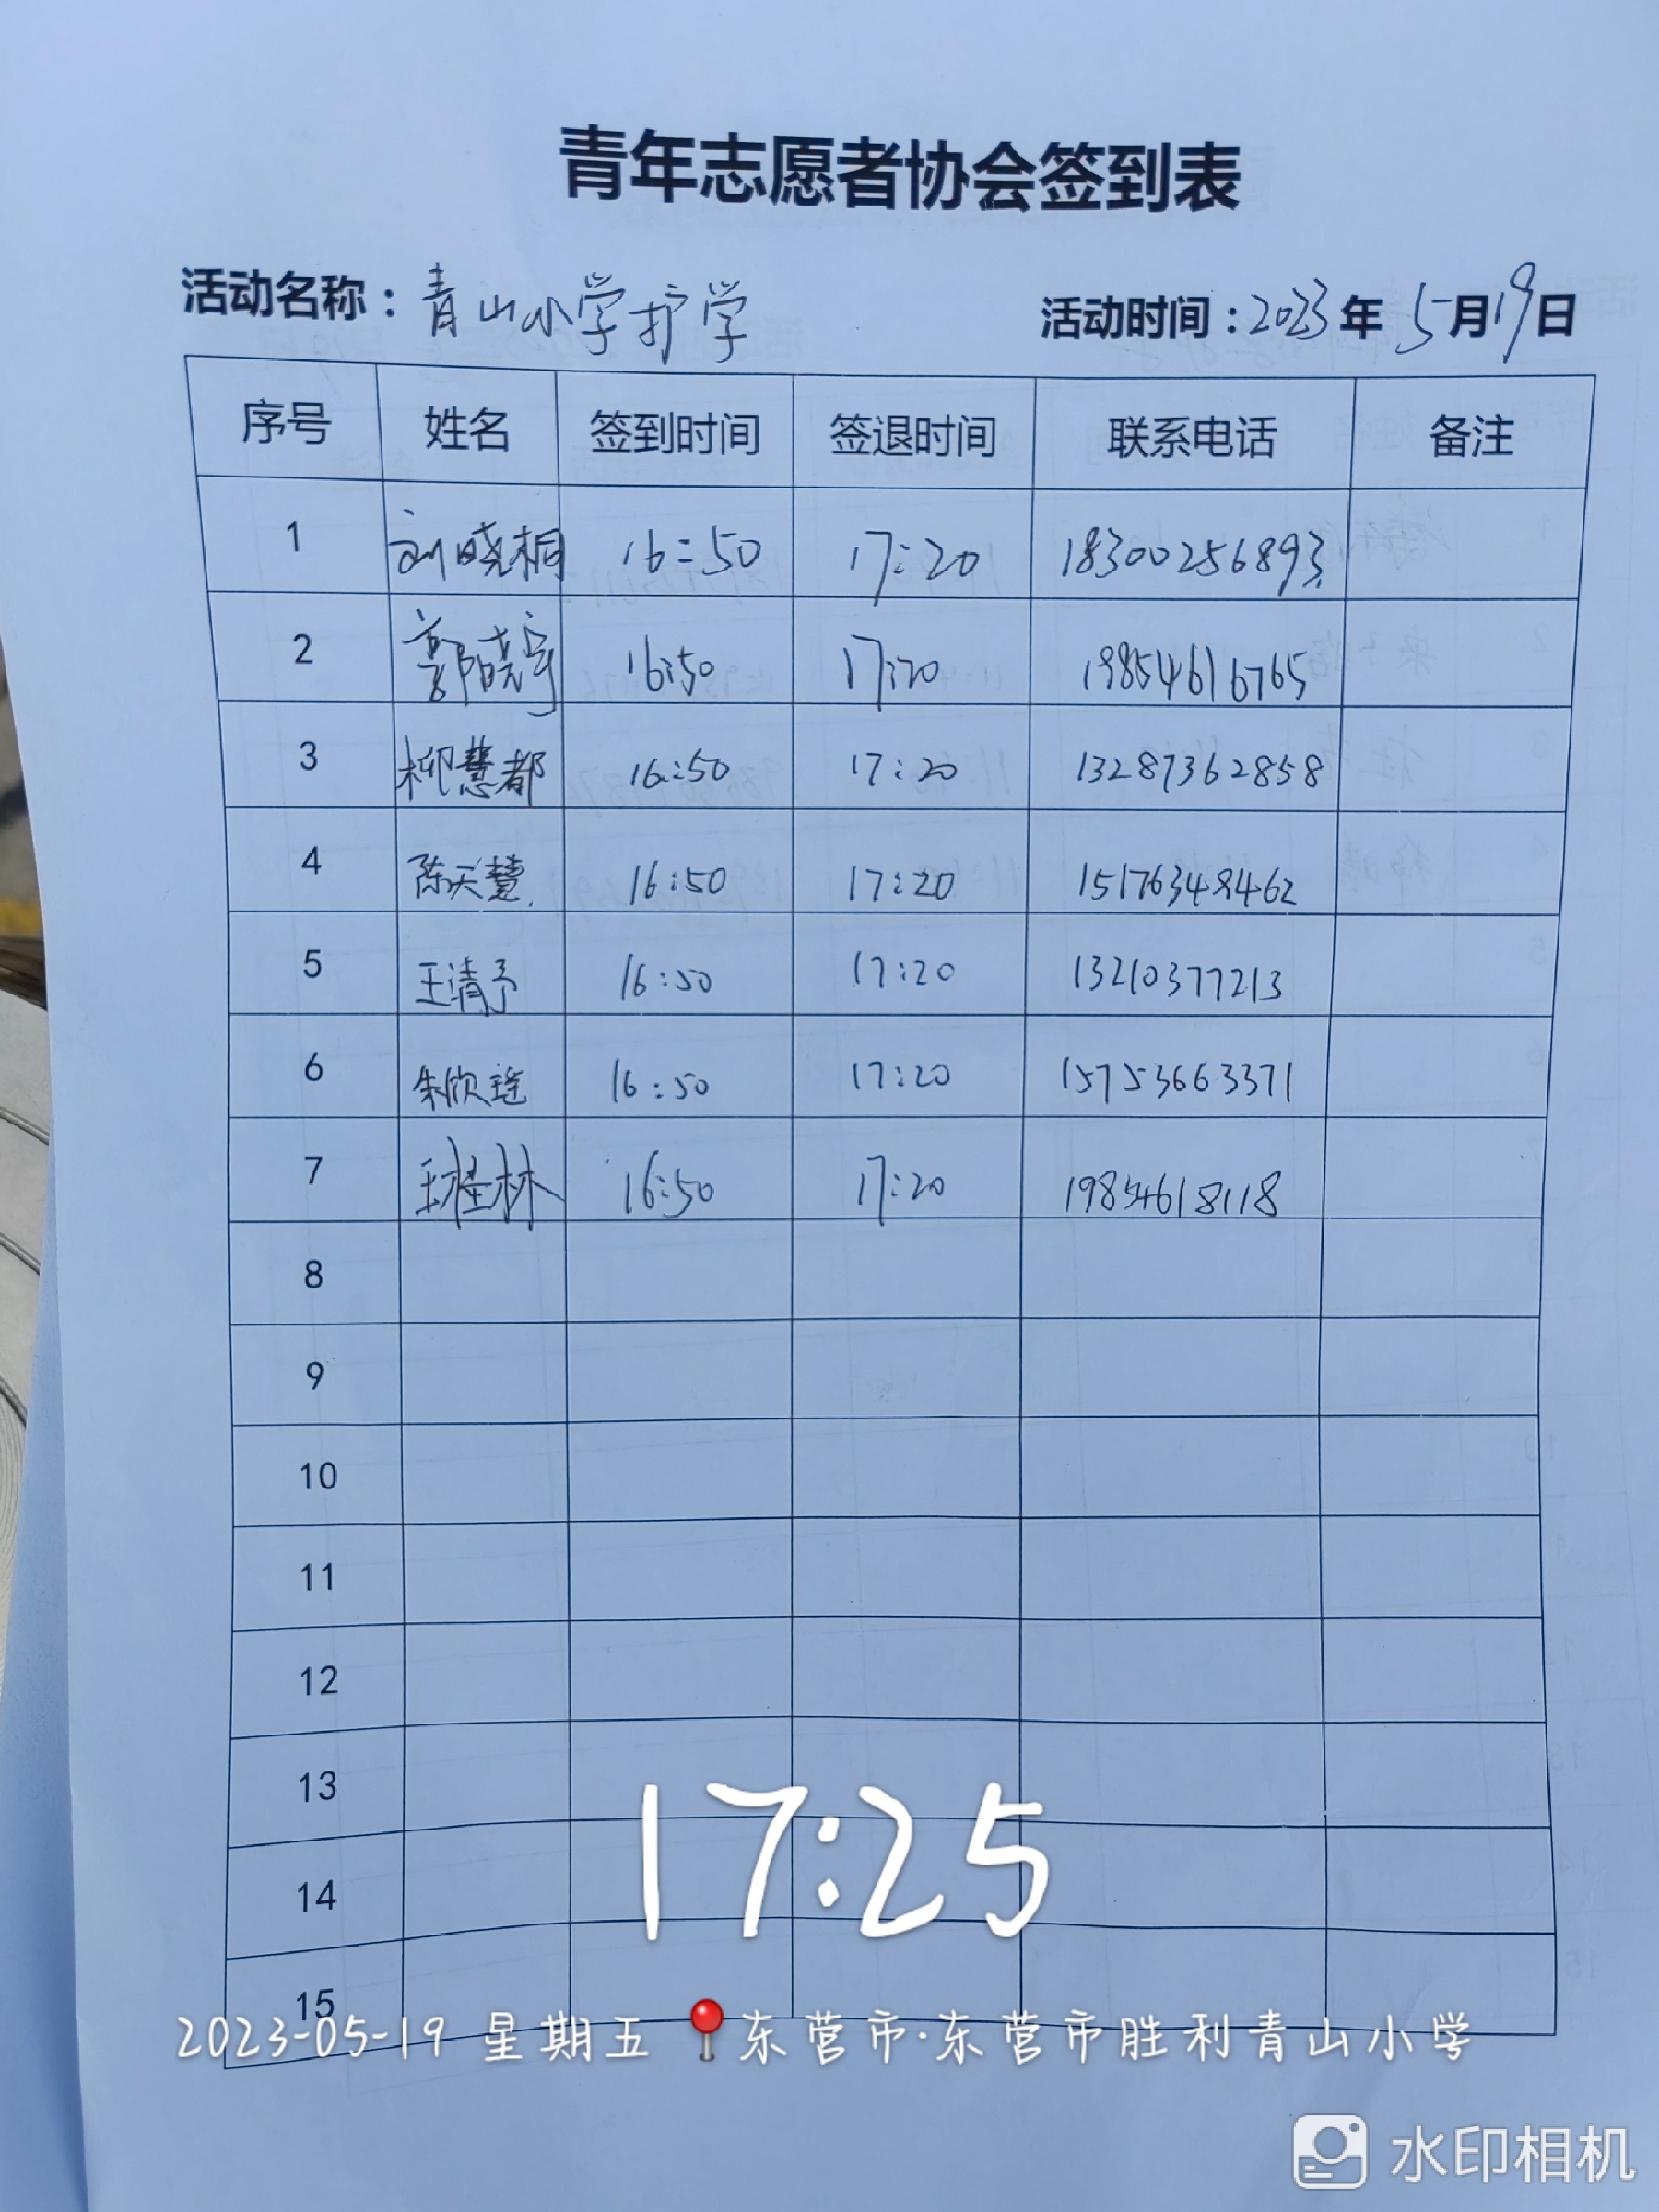 青年志愿者协会签到表
活动名称：青山小学护学 活动时间：2023年5月19日
序号 姓名 签到时间 签退时间 联系电话 备注
1 刘晓桐 16:50 17:20 18300256893
2 郭晓宇 16:50 17:20 19854616765
3 柳慧都 16:50 17:20 13287362858
4 陈天慧 16:50 17:20 15176348462
5 王清予 16:50 17:20 13210377213
6 朱欣瑶 16:50 17:20 15753663371
7 王桂林 16:50 17:20 19854618118
8
9
10
11
12
13
14
15
17:25
2023-05-19 星期五 东营市·东营市胜利青山小学
水印相机